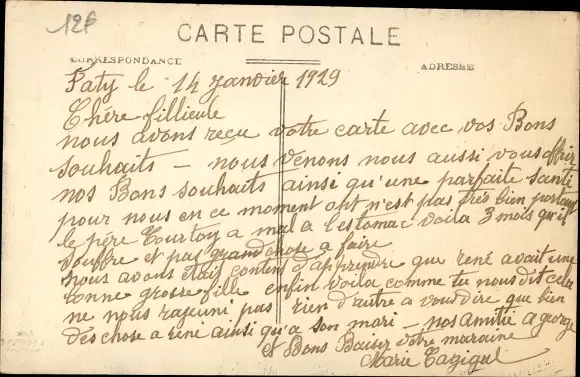 12f
CARTE POSTALE
CORRESPONDANCE
ADRESME
Paty le 14 Janvier 1929
Chére fillieule
nous avons reçu votre carte avec vos Bons
souhaits – nous venons nous aussi vous offrir
nos Bons souhaits ainsi qu'une parfaite santé
pour nous en ce moment n'est pas très bien portant
le pére Tourtoy a mal a l'estomac voila 3 mois qu'il
souffre et pas grand chose a faire
nous avons était content d'apprendre que rené avait une
bonne grosse fille enfin voila comme tu nous dit cela
ne nous rajeuni pas rien d'autre a vou dire que bien
des chose a réné ainsi qu'a son mari – nos amitié a george
et Bons Baiser votre maraine
Marie